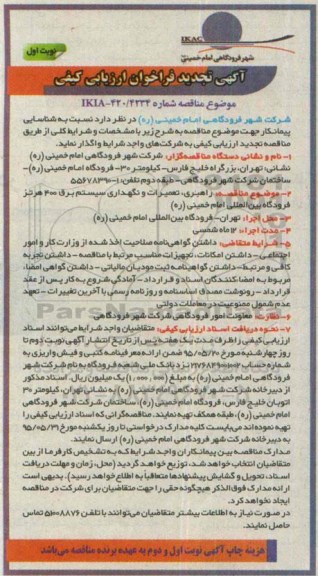 IKAC
شهر فرودگاهی امام خمینی (ره)
نوبت اول
آگهی تجدید فراخوان ارزیابی کیفی
موضوع مناقصه شماره IKIA-۴۲۰/۴۲۳۴
شرکت شهر فرودگاهی امام خمینی (ره) در نظر دارد نسبت به شناسایی
پیمانکار جهت موضوع مناقصه به شرح زیر با مشخصات و شرایط کلی از طریق
مناقصه تجدید ارزیابی کیفی به شرکت‌های واجد شرایط واگذار نماید.
۱- نام و نشانی دستگاه مناقصه‌گزار: شرکت شهر فرودگاهی امام خمینی (ره)
نشانی: تهران، بزرگراه خلیج فارس- کیلومتر ۳۰- فرودگاه امام خمینی (ره)-
ساختمان شرکت شهر فرودگاهی- طبقه دوم تلفن: ۱-۵۵۶۷۸۳۹۰
۲- موضوع مناقصه: راهبری، تعمیرات و نگهداری سیستم برق ۴۰۰ هرتز
فرودگاه بین‌المللی امام خمینی (ره)
۳- محل اجرا: تهران- فرودگاه بین‌المللی امام خمینی (ره)
۴- مدت اجرا: ۱۲ ماه شمسی
۵- شرایط متقاضی: داشتن گواهی‌نامه صلاحیت اخذ شده از وزارت کار و امور
اجتماعی- داشتن امکانات، تجهیزات مناسب مرتبط با مناقصه- داشتن تجربه
کافی و مرتبط- داشتن گواهینامه ثبت مودیان مالیاتی- داشتن گواهی امضاء
مربوط به امضاکنندگان اسناد و قرارداد- آمادگی شروع به کار پس از عقد
قرارداد- رونوشت مصدق اساسنامه و روزنامه رسمی با آخرین تغییرات- تعهد
عدم شمول ممنوعیت در معاملات دولتی
۶- نظارت: معاونت امور فرودگاهی شرکت شهر فرودگاهی
۷- نحوه دریافت اسناد ارزیابی کیفی: متقاضیان واجد شرایط می‌توانند اسناد
ارزیابی کیفی را ظرف مدت یک هفته پس از تاریخ انتشار آگهی نوبت دوم تا
روز چهارشنبه مورخ ۹۵/۰۵/۲۰ ضمن ارائه معرفینامه کتبی و فیش واریزی به
شماره حساب نزد بانک ملی شعبه فرودگاه به نام شرکت شهر
فرودگاهی امام خمینی (ره) به مبلغ (۱,۰۰۰,۰۰۰) یک میلیون ریال، اسناد مذکور
از دبیرخانه شرکت شهر فرودگاهی امام خمینی (ره) به نشانی تهران، کیلومتر ۳۰
اتوبان خلیج فارس، فرودگاه امام خمینی (ره)، ساختمان شرکت شهر فرودگاهی
امام خمینی (ره)، طبقه همکف تهیه نمایند. مناقصه‌گرانی که اسناد ارزیابی کیفی را
تهیه نموده اند می‌بایست کلیه مدارک درخواستی تا روز یکشنبه مورخ ۹۵/۰۵/۳۱
به دبیرخانه شرکت شهر فرودگاهی امام خمینی (ره) ارسال نمایند.
مدارک مناقصه بین پیمانکاران واجد شرایط که به تشخیص کارفرما از بین
متقاضیان انتخاب خواهد شد، توزیع خواهد گردید (محل، زمان و مهلت دریافت
اسناد، تحویل و گشایش پیشنهادها متعاقباً به اطلاع خواهد رسید). بدیهی است
ارائه مدارک فوق الذکر هیچگونه حقی را جهت متقاضیان برای شرکت در مناقصه
ایجاد نخواهد کرد.
در صورت نیاز به اطلاعات بیشتر متقاضیان می‌توانند با تلفن ۵۱۰۰۸۸۷۶ تماس
حاصل نمایند.
هزینه چاپ آگهی نوبت اول و دوم به عهده برنده مناقصه می‌باشد